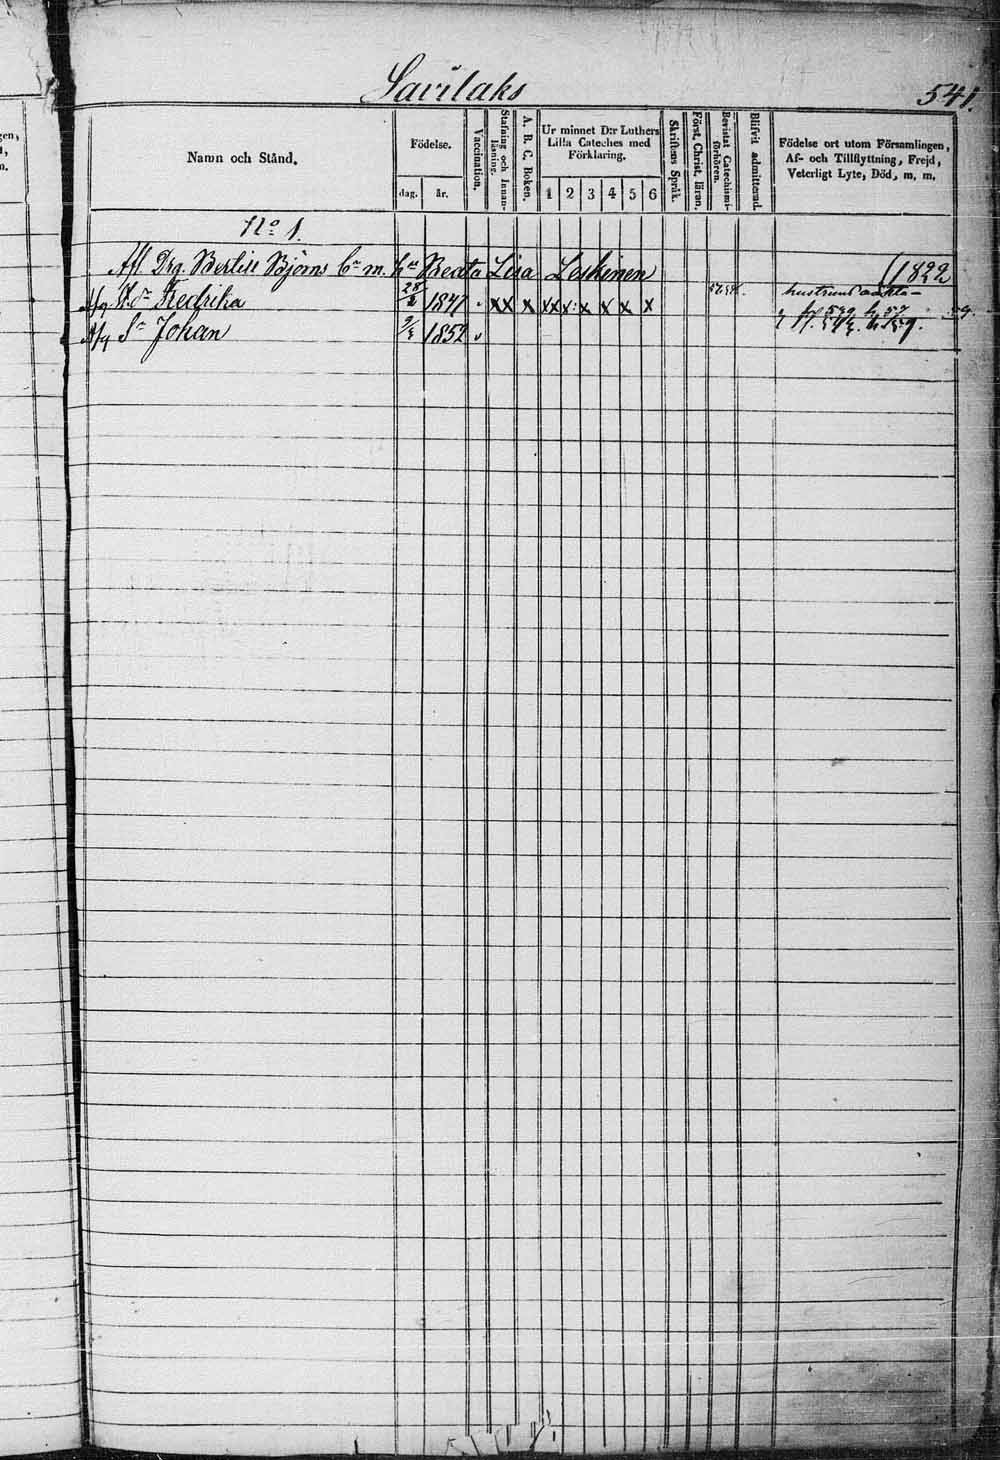 Savilaks
541.
Namn och Stånd.
Födelse.
dag.
år.
Vaccination.
Stafning och Innan-
läsning.
A. B. C. Boken.
Ur minnet D:r Luthers
Lilla Cateches med
Förklaring.
1 2 3 4 5 6
Skriftens Språk.
Först. Christ. läran.
Bevistat Catechismi-
förhören.
Blifvit admitterad.
Födelse ort utom Församlingen,
Af- och Tillflyttning, Frejd,
Veterligt Lyte, Död, m. m.
No 1.
Afl. Drg. Bertill Björns m. Beata Lisa Leskinen (1822
D:r Fredrika 28/2 1847 x x x x x x x x x
S:n Johan 1852